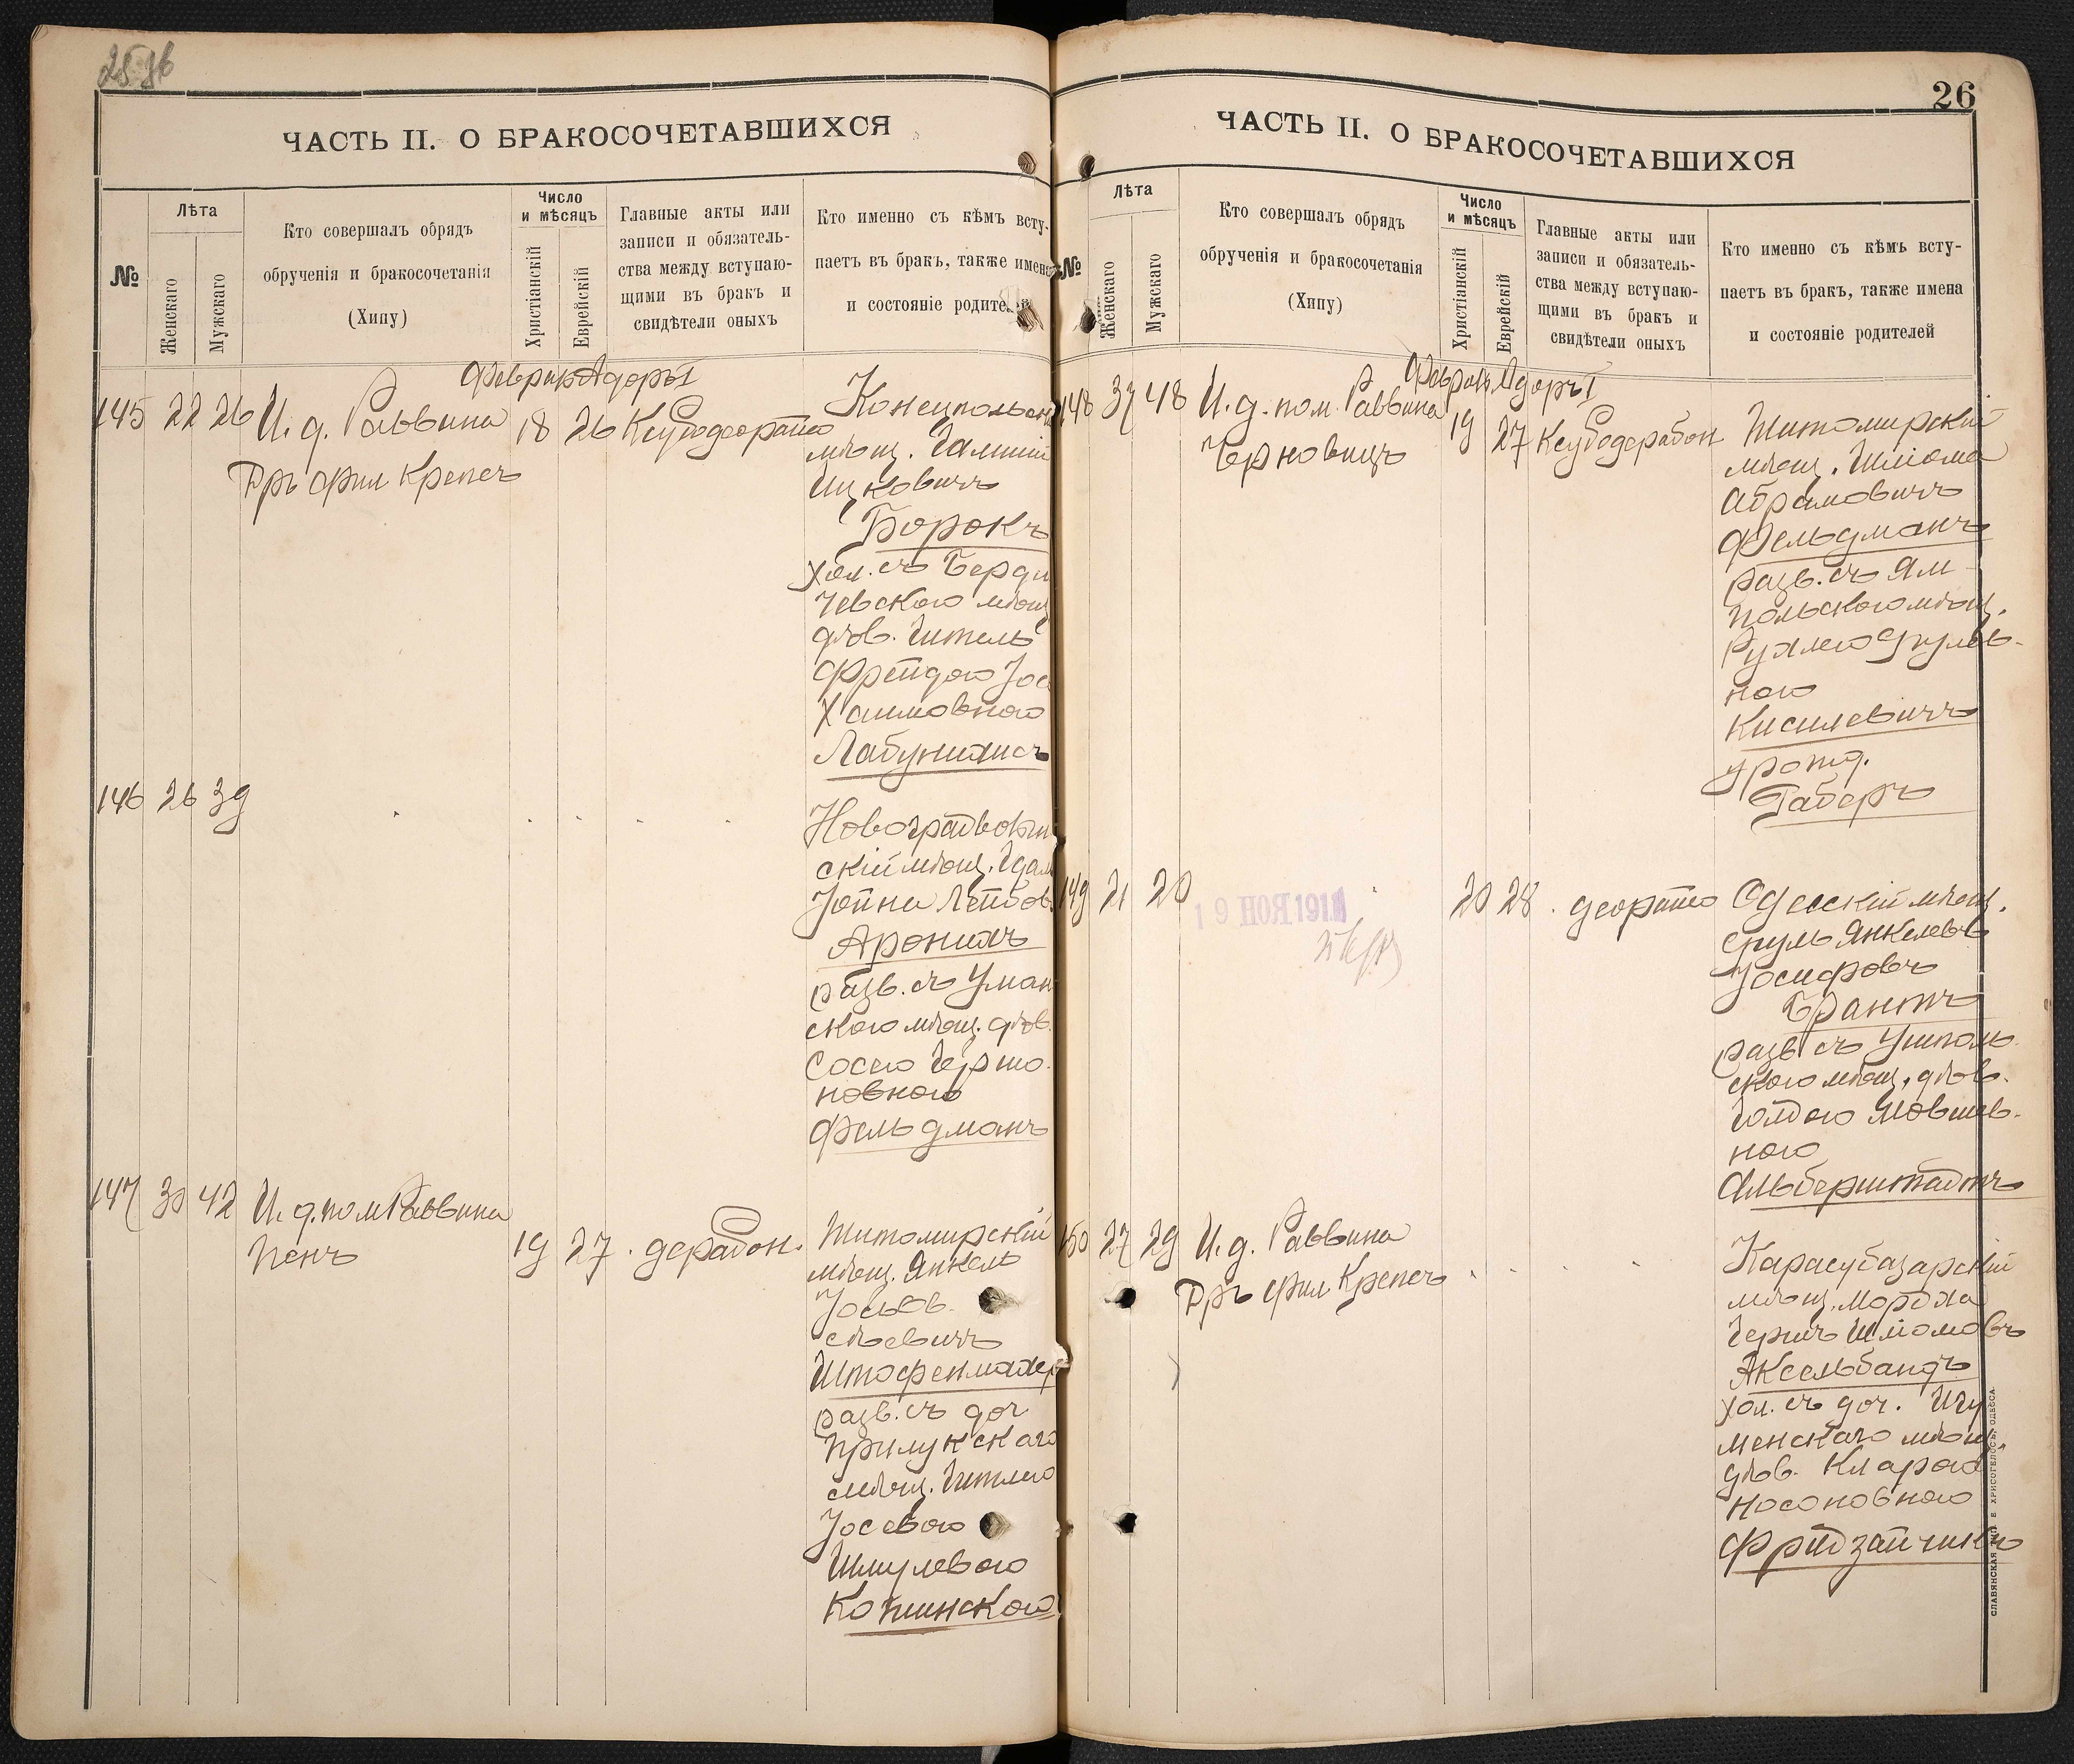 26
ЧАСТЬ II. О БРАКОСОЧЕТАВШИХСЯ
№
Лѣта
Женскаго
Мужскаго
Кто совершалъ обрядъ
обрученія и бракосочетанія
(Хипу)
Число
и мѣсяцъ
Христіанскій
Еврейскій
Главные акты или
записи и обязатель-
ства между вступаю-
щими въ бракъ и
свидѣтели оныхъ
Кто именно съ кѣмъ всту-
паетъ въ бракъ, также имена
и состояніе родителей
145 22 26 И. д. Раввина 18 26
Дръ фил Крепсъ
мѣщ.
Ицковичъ
Борокъ
хол. съ Берди
чевского мѣщ
дѣв. Гитель
Фрейдою Іос
Хаимовною
146 26 39
скій мѣщ.
Іойна Лейбов
разв. съ Уман
ского мѣщ. дѣв.
Сосею
новною
Фельдманъ
147 30 42 И. д. пом Раввина
Пенъ
19 27
Житомирскій
мѣщ. Янкель
Штофенмахер
разв. съ доч
Прилукскаго
мѣщ. Гитлею
Іосевою
Шмулевою
ЧАСТЬ II. О БРАКОСОЧЕТАВШИХСЯ
№
Лѣта
Женскаго
Мужскаго
Кто совершалъ обрядъ
обрученія и бракосочетанія
(Хипу)
Число
и мѣсяцъ
Христіанскій
Еврейскій
Главные акты или
записи и обязатель-
ства между вступаю-
щими въ бракъ и
свидѣтели оныхъ
Кто именно съ кѣмъ всту-
паетъ въ бракъ, также имена
и состояніе родителей
148 37 48 И. д. пом. Раввина
Черновицъ
19 27
Житомирскій
мѣщ. Шліома
Абрамовичъ
Фельдманъ
разв. съ Ям-
польского мѣщ.
Рухлею Срулев-
ною
Кисилевичъ
урожд.
Таберъ
149 21 20
19 НОЯ 1911
20 28
Одесскій мѣщ.
Сруль Янкелевъ
Іосифовъ
Брантъ
разв съ
ского мѣщ. дѣв.
Голдою Мовшев-
ною
Альберштадтъ
150 27 29 И. д. Раввина
Дръ фил. Крепсъ
Карасубазарскій
мѣщ. Мордха
Гершъ Шліомовъ
Аксельбандъ
хол. съ доч. Игу
менскаго мѣщ.
дѣв. Кларою
Носоновною
Фридзайчикъ
СЛАВЯНСКАЯ ТИП. Е. ХРИСОГЕЛОСЪ, ОДЕССА.